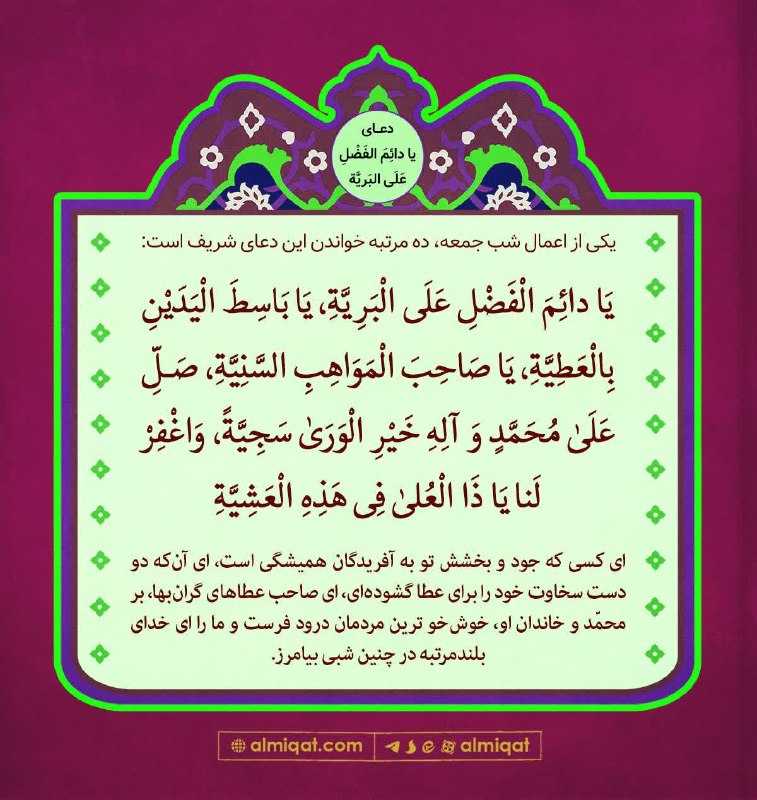 دعـای
یا دائِمَ الفَضْلِ
عَلَی البَریَّة
یکی از اعمال شب جمعه، ده مرتبه خواندن این دعای شریف است:
یَا دائِمَ الْفَضْلِ عَلَی الْبَرِیَّةِ، یَا بَاسِطَ الْیَدَیْنِ
بِالْعَطِیَّةِ، یَا صَاحِبَ الْمَوَاهِبِ السَّنِیَّةِ، صَـلِّ
عَلَیٰ مُحَمَّدٍ وَ آلِهِ خَیْرِ الْوَرَیٰ سَجِیَّةً، وَاغْفِرْ
لَنا یَا ذَا الْعُلیٰ فِی هَذِهِ الْعَشِیَّةِ
ای کسی که جود و بخشش تو به آفریدگان همیشگی است، ای آن‌که دو
دست سخاوت خود را برای عطا گشوده‌ای، ای صاحب عطاهای گران‌بها، بر
محمّد و خاندان او، خوش‌خو ترین مردمان درود فرست و ما را ای خدای
بلندمرتبه در چنین شبی بیامرز.
almiqat.com | almiqat